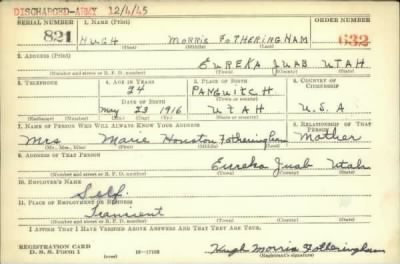 DISCHARGED-ARMY 12/4/45
SERIAL NUMBER 1. NAME (Print) ORDER NUMBER
821 HUGH MORRIS FOTHERINGHAM 632
(First) (Middle) (Last)
2. ADDRESS (Print)
EUREKA JUAB UTAH
(Number and street or R. F. D. number) (Town) (County) (State)
3. TELEPHONE 4. AGE IN YEARS 5. PLACE OF BIRTH 6. COUNTRY OF CITIZENSHIP
24 PANGUITCH
DATE OF BIRTH (Town or county)
May 23 1916 UTAH U.S.A
(Exchange) (No.) (Mo.) (Day) (Yr.) (State or country)
7. NAME OF PERSON WHO WILL ALWAYS KNOW YOUR ADDRESS 8. RELATIONSHIP OF THAT PERSON
Mrs Marie Houston Fotheringham Mother
(Mr., Mrs., Miss) (First) (Middle) (Last)
9. ADDRESS OF THAT PERSON
Eureka Juab Utah
(Number and street or R. F. D. number) (Town) (County) (State)
10. EMPLOYER'S NAME
Self
11. PLACE OF EMPLOYMENT OR BUSINESS
Transient
(Number and street or R. F. D. number) (Town) (County) (State)
I AFFIRM THAT I HAVE VERIFIED ABOVE ANSWERS AND THAT THEY ARE TRUE.
REGISTRATION CARD
D. S. S. FORM 1 (over) Hugh Morris Fotheringham
(Registrant's signature)